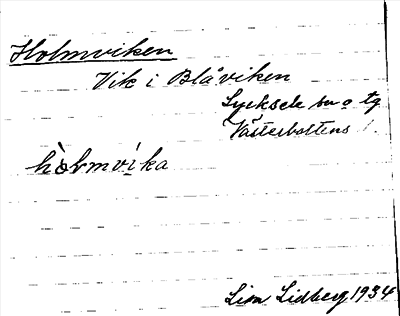 Holmviken
Vik i Blåviken
Lycksele sn o tg
Västerbottens l.
hòlmvika
Lisa Lidberg 1934